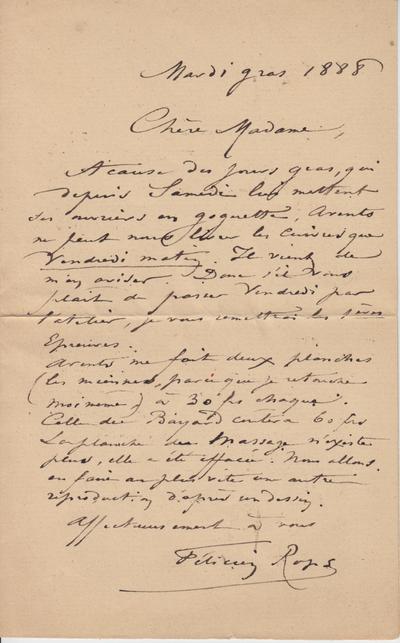 Mardi gras 1888
Chère Madame,
A cause des jours gras, qui
depuis Samedi lui mettent
ses ouvriers en goguette, Arents
ne peut nous livrer les cuivres que
Vendredi matin. Il vient de
m'en aviser. Donc s'il vous
plait de passer Vendredi par
l'atelier, je vous remettrai les 1ères
Epreuves.
Arents me fait deux planches
(les miennes, parce que je retouche
moi même) à 30 frs chaque.
Celle du Bayard coutera 60 frs
La planche du Massage n'existe
plus, elle a été effacée. Nous allons
en faire au plus vite une autre
reproduction d'après un dessin.
Affectueusement à vous
Félicien Rops